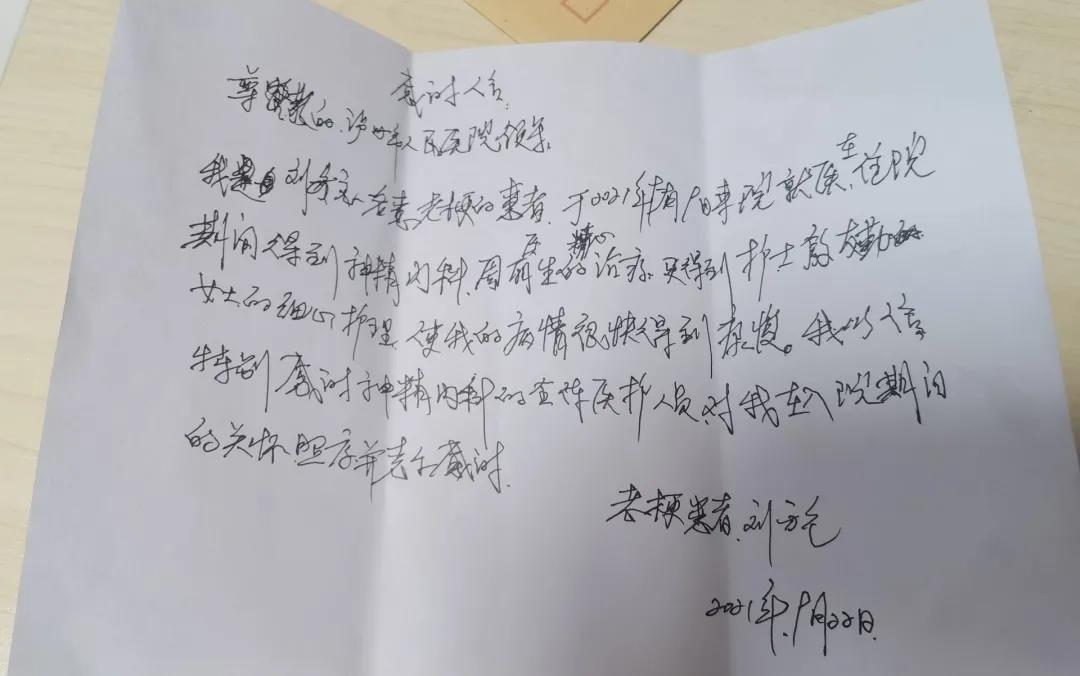 感谢信
尊敬的 人民医院领导
我是 刘 患 老梗的患者，于2021年 9日来院就医，在住院
期间得到神精内科，周 医生精心的治疗，又得到护士 勤
女士的细心护理，使我的病情很快得到康复。我以信
特别感谢神精内科的全体医护人员，对我在入院期间
的关怀，照 并 感谢，
老梗患者，刘方
2021年，9月22日，